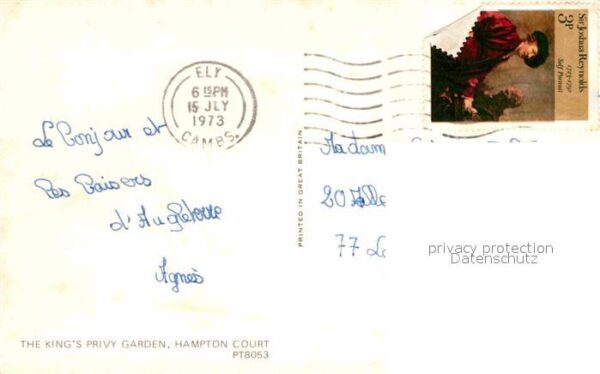 ELY
6 15PM
15 JLY
1973
CAMBS.
Sir Joshua Reynolds
1723-1792
Self Portrait
3P
Le Bonjour et
Les Baisers
d'Angleterre
Agnès
PRINTED IN GREAT BRITAIN
Madam
20 Alle
77 Le
privacy protection
Datenschutz
THE KING'S PRIVY GARDEN, HAMPTON COURT
PT8053